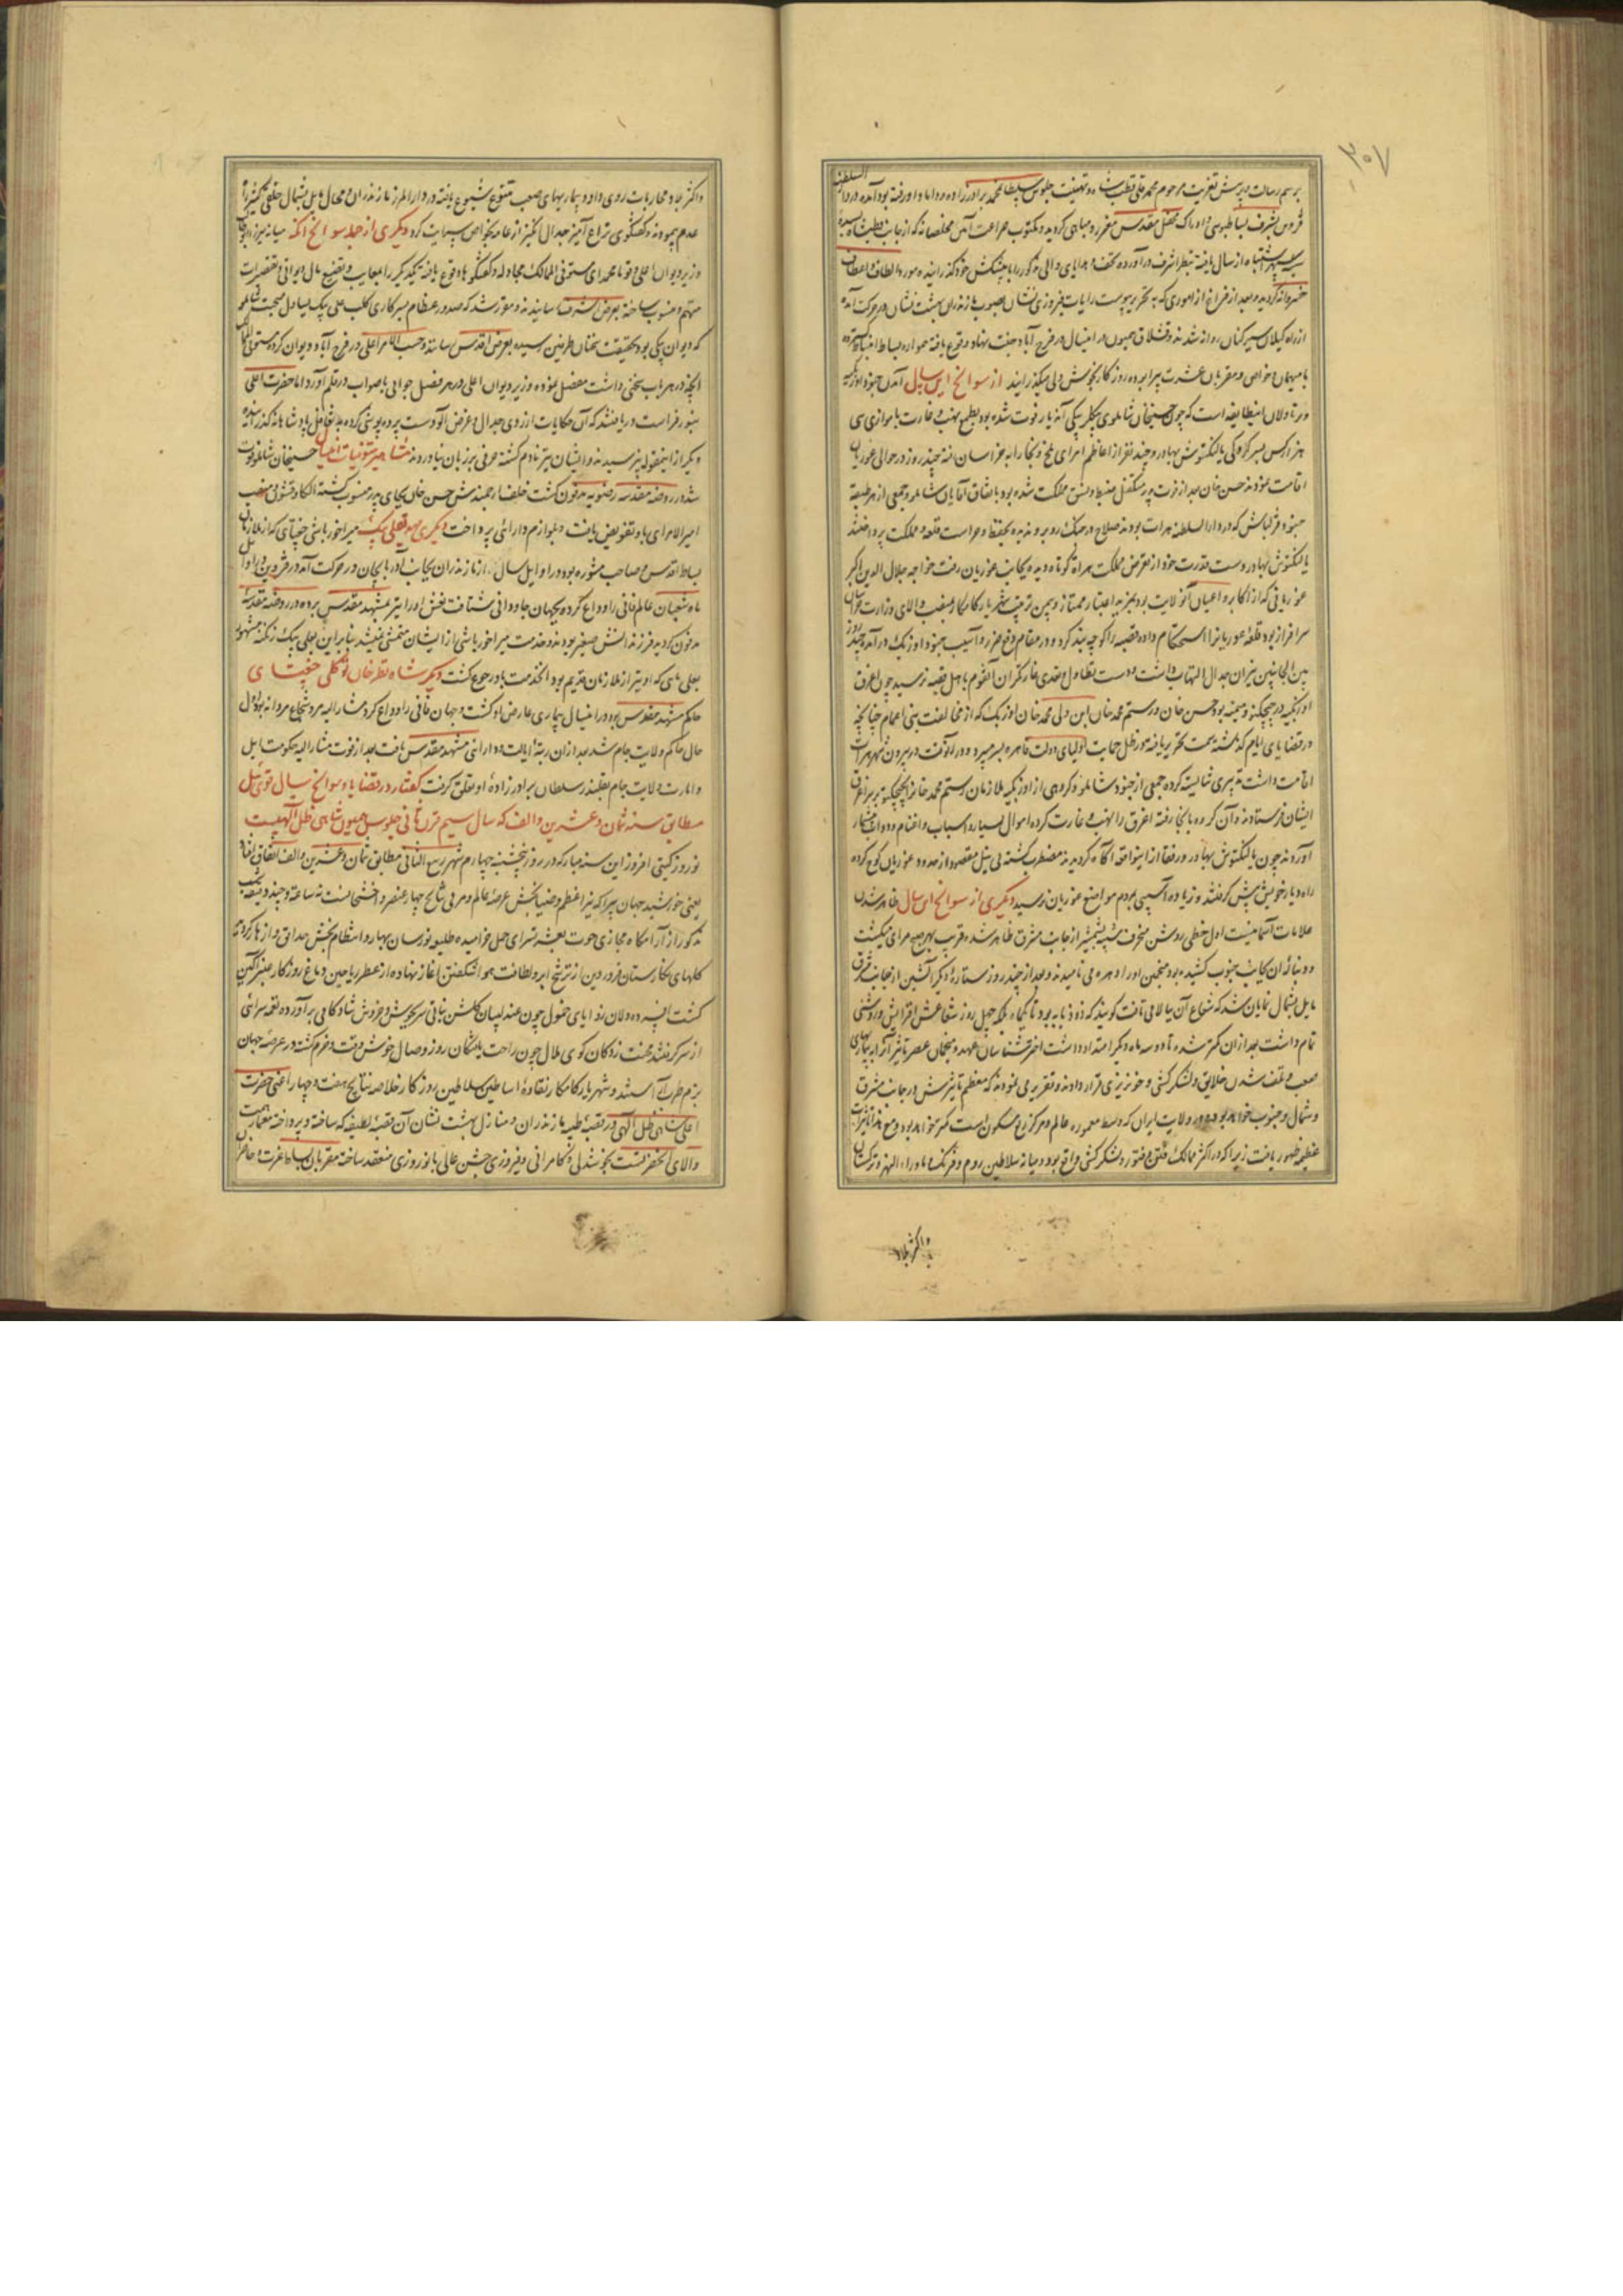 ۳۰۷
برسم رسالت و پرسش تعزیت مرحوم محمدقلی قطب شاه و تهنیت جلوس سلطان محمد برادرزاده و داماد او رفته بود آمده در دار السلطنه
قزوین بشرف بساط بوسی و ادراک محفل مقدس معزز و مباهی گردید و مکتوب ضراعت آمیز مخلصانه که از جانب قطب شاه
سپهر اشتباه ارسال یافته بنظر اشرف درآورده تحف و هدایای والی مذکور را با پیشکش خود گذرانیده مورد الطاف و اعطاف
خسروانه گردید و بعد از فراغ از اموری که به تحریر پیوست رایات فیروزی نشان بصوب مازندران بهشت نشان در حرکت آمده
از راه گیلان سیرکنان روانه شدند و قشلاق همیون در اینسال در فرح آباد جنت نهاد وقوع یافته همواره بساط انبساط گسترده
با میهمان خواص و مقربان عشرت پیرا بوده روزگار بخوش دلی میگذرانیدند از سوانح این سال آمدن جنود اوزبکیه
و رتاولان اینطایفه است که چون حسینخان شاملوی بیگلربیگی آندیار فوت شده بود بطمع نهب و غارت با موازی سی
هزار کس بسرکردگی یالنکتوش بهادر و چند نفر از اعاظم امرای بلخ و بخارا به خراسان آمده چند روز در حوالی غوریان
اقامت نمودند حسن خان بعد از فوت پدر متکفل ضبط و نسق مملکت شده بود باتفاق آقایان شاملو و جمعی از هر طبقه
جنود قزلباش که در دار السلطنه هرات بودند صلاح در جنگ رو برو ندیده بحفظ و حراست قلعه و مملکت پرداختند
یالنکتوش بهادر دست قدرت خود از تعرض مملکت هراة کوتاه دیده بجانب غوریان رفت خواجه جلال الدین اکبر
غوریانی که از اکابر و اعیان آنولایت بود بمزید اعتبار ممتاز و بیمن تربیت شهریار کامکار بمنصب والای وزارت خراسان
سرافراز بود قلعه غوریانرا استحکام داده قصبه را کوچه بند کرد و در مقام دفع ضرر و آسیب جنود اوزبک درآمده چند روز
بین الجانبین نیران جدال التهاب داشت و دست تطاول و تعدی غارتگران آنقوم باهل قصبه نرسید چون اغرق
اوزبکیه در چیچکتو و میمنه بود حسن خان و رستم محمد خان ابن ولی محمد خان اوزبک که از مخالفت بنی اعمام چنانچه
در قضایای ایام گذشته سمت تحریر یافته در ظل حمایت اولیای دولت قاهره بسر میبرد و در آنوقت در بیرون شهر هرات
اقامت داشت تدبیری شایسته کرده جمعی از جنود شاملو و گروهی از اوزبکیه ملازمان رستم محمد خان را بچیچکتو بر سر اغرق
ایشان فرستادند و آن گروه بانجا رفته اغرق را نهب و غارت کرده اموال بسیار و اسباب و اغنام و دواب بیشمار
آوردند چون یالنکتوش بهادر و رفقا از اینواقعه آگاه گردیدند مضطرب گشته بی نیل مقصود از حدود غوریان کوچ کرده
راه دیار خویش پیش گرفتند و زیاده آسیبی بمردم مواضع غوریان نرسید دیگری از سوانح این سال ظاهر شدن
علامات آسمانیست اول خطی روشن منحرف شبیه بشمشیر از جانب مشرق ظاهر شده قریب بهر صبح مرای میگشت
و دنباله آن بجانب جنوب کشیده بود منجمین او را حربه می نامیدند و بعد از چند روز ستاره دیگر آتشین از جانب مشرق
مایل بشمال نمایان شد که شعاع آن ببالا می تافت گویند که ذو ذوابه بود تا یکماه بلکه چهل روز شعاعش افزایش و روشنی
تمام داشت بعد از آن کمتر شده تا دو سه ماه دیگر امتداد داشت اخترشناسان عهد و منجمان عصر تاثیر آنرا به بیماری
صعب و تلف شدن خلایق و لشکرکشی و خونریزی قرار دادند و تقریر می نمودند که معظم تاثیرش در جانب مشرق
و شمال و جنوب خواهد بود و در ولایت ایران که وسط معموره عالم و مرکز ربع مسکون است کمتر خواهد بود و مع هذا تاثیرات
عظیمه ظهور یافت زیرا که در اکثر ممالک فتن و فتور و لشکرکشی واقع بود و میانه سلاطین روم و فرنگ و ماوراء النهر و ترکستان
و اکثر بلاد
و اکثر بلاد محاربات روی داد و بیماریهای صعب متنوع شیوع یافته در دار المرز مازندران و محال مایل بشمال خلقی کثیر راه
عدم پیمودند و گفتگوی نزاع آمیز جدال انگیز از عامه بخواص سرایت کرد دیگری از جمله سوانح آنکه میانه
وزیر دیوان اعلی و قوام محمدای مستوفی الممالک مجادله و گفتگوها وقوع یافته یکدیگر را بمعایب و تضییع مال دیوانی و تقصیرات
متهم و منسوب ساخته بعرض اشرف رسانیدند و مقرر شد که صدور عظام بسرکاری کلب علی بیک یساول صحبت شاملو
که دیوان بیگی بود بحقیقت سخنان طرفین رسیده بعرض اقدس رسانند و حسب الامر اعلی در فرح آباد دیوان کرده مستوفی الممالک
آنچه در هر باب سخنی داشت مفصل نموده وزیر دیوان اعلی در هر فصل جوابی باصواب در قلم آورد اما حضرت اعلی
بنور فراست دریافتند که آن حکایات از روی جدال و غرض آلودست پرده پوشی کرده به تغافل پادشاهانه گذرانیده
دیگر از اینمقوله نپرسیدند و ایشان نیز نادم گشته حرفی بر زبان نیاوردند مشاهیر متوفیات حسینخان شاملو فوت
شد در روضه مقدسه رضویه مدفون گشت خلف ارجمندش حسن خان بجای پدر منسوب گشته الکا و قشون و منصب
امیر الامرای باو تفویض یافت و بلوازم دارائی پرداخت دیگری مهدیقلی بیک میراخورباشی جغتای که از ملازمان
بساط اقدس و مصاحب مشوره بود در اوایل سال از مازندران بجانب آذربایجان در حرکت آمد در قزوین
ماه شعبان عالم فانی را وداع کرده بجهان جاودانی شتافت نعش او را نیز بمشهد مقدس برده در روضه مقدسه
مدفون گردید فرزندانش صغیر بودند و خدمت میراخورباشی از ایشان متمشی نمیشد بنابراین بعلی بیک زنگنه مشهور
بعلی بالی که او نیز از ملازمان قدیم بود آنخدمت باو رجوع گشت دیگر شاه نظر خان توکلی جغتای
حاکم مشهد مقدس بود در اینسال بیماری عارض او گشت و جهان فانی را وداع کرد مشارالیه مرد شجاع مردانه بود اول
حال حاکم ولایت جام شد بعد از آن رتبهٔ ایالت و دارائی مشهد مقدس یافت بعد از فوت مشارالیه حکومت ایل
و امارت ولایت جام بقلندر سلطان برادرزادهٔ او تعلق گرفت گفتار در قضایا و سوانح سال قوی ئیل
مطابق سنه ثمان و عشرین و الف که سال سیم قرن ثانی جلوس همیون شاهی ظل الهیست
نوروز گیتی افروز این سنه مبارکه در روز پنجشنبه چهارم شهر ربیع الثانی مطابق ثمان و عشرین و الف اتفاق افتاد
یعنی خورشید جهان پیرا که نیر اعظم و ضیابخش عرصهٔ عالم و مربی نتایج چهار عنصر و اخشیجانست نه ساعت و چند دقیقه شب
مذکور از آرامگاه مجازی حوت بعشرتسرای حمل خرامیده طلیعه نورسان بهار و انتظام بخش حدائق و ازهار گردید
گلهای نگارستان فروردین از ترشح ابر و لطافت هوا شکفتن آغاز نهاده از عطر ریاحین دماغ روزگار عنبرآگین
گشت افسرده دلان زوایای خمول چون عندلیبان گلشن بباقی سر بجوش و خروش شادکامی برآورده نغمه سرائی
از سر گرفتند محنت زدگان کوی ملال چون راحت یافتگان روز وصال خوش وقت و خرم گشته در عرصهٔ جهان
بزم طرب آراستند و شهریار کامکار نقاوهٔ اساطین سلاطین روزگار خلاصه نتایج هفت و چهار اعنی حضرت
اعلی شاهی ظل الهی در قصبهٔ طیبه مازندران و منازل بهشت نشان آن قصبهٔ لطیفه که ساخته و پرداخته معمار همت
والای آنحضرتست بخوشدلی و کامرانی و فیروزی جشن عالی بانوروزی منعقد ساخته مقربان بساط عزت و حاضران